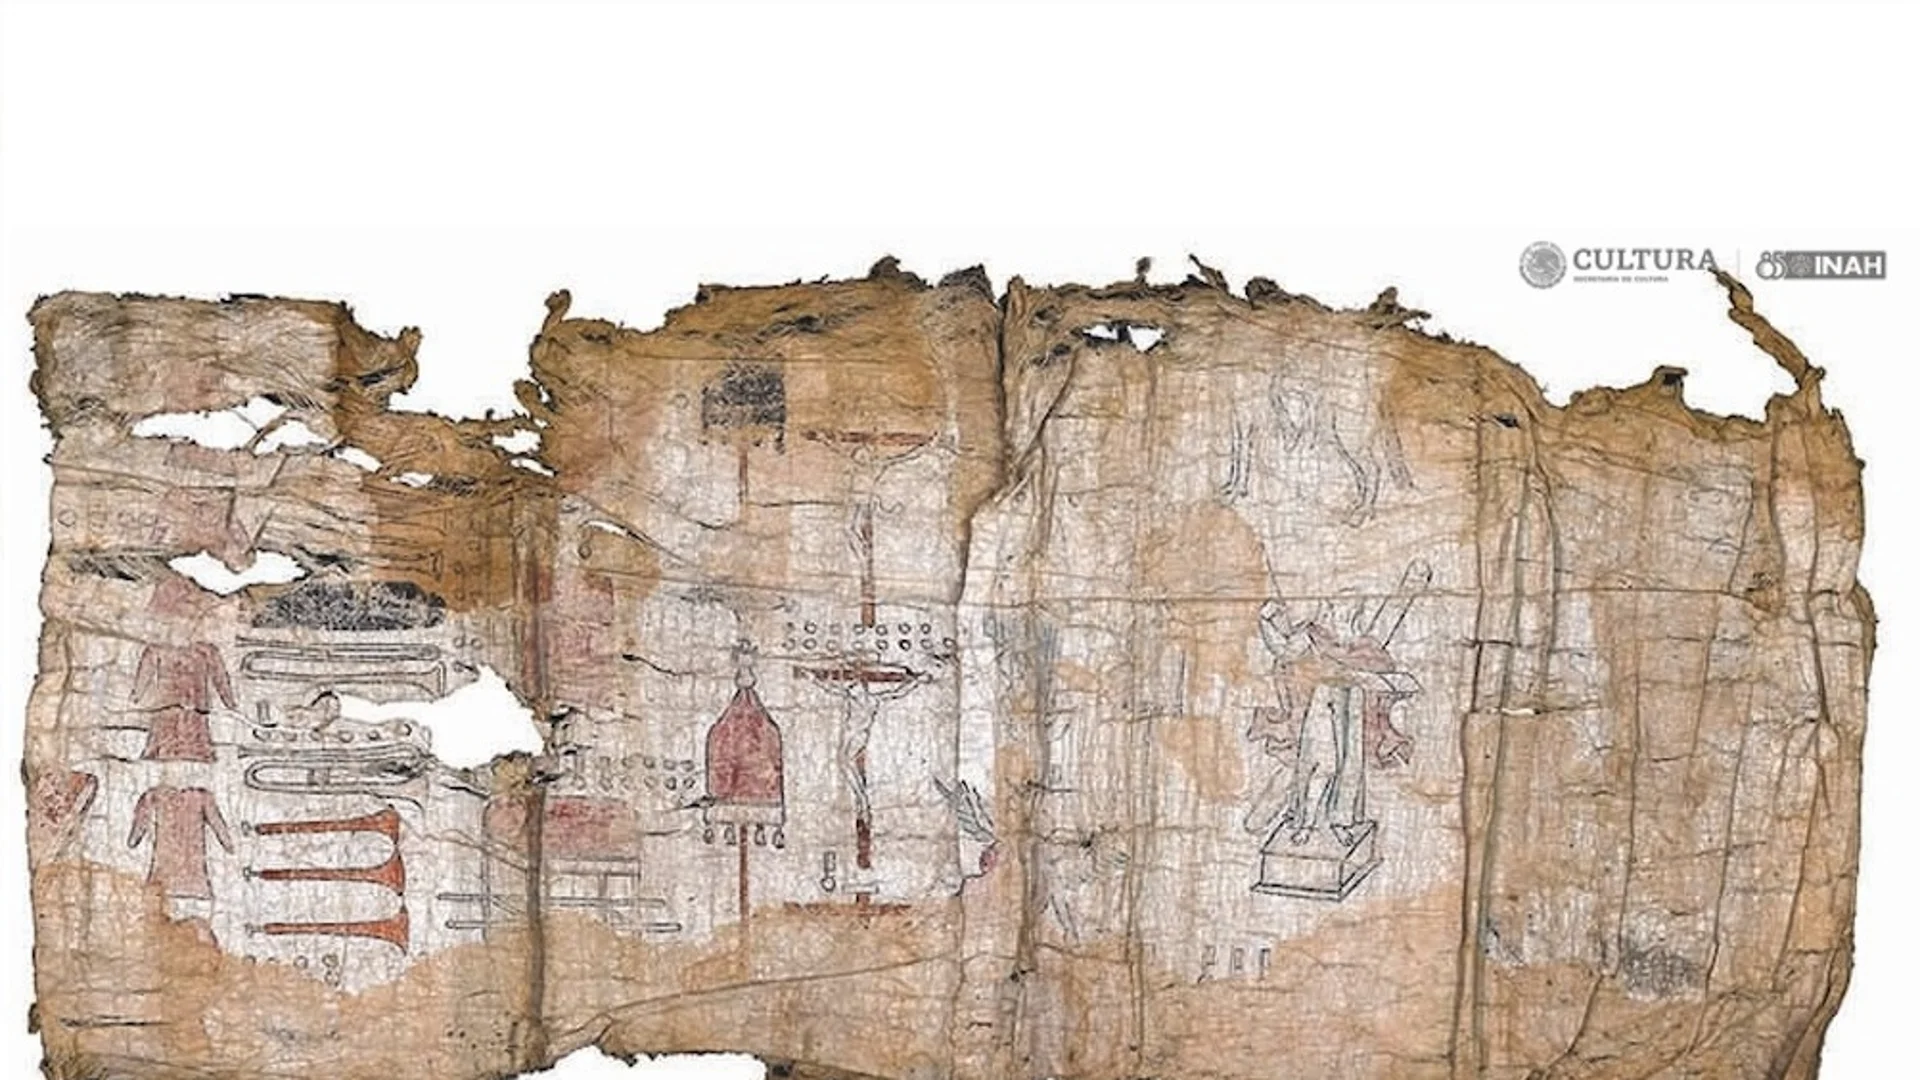 CULTURA
SECRETARÍA DE CULTURA
85 INAH